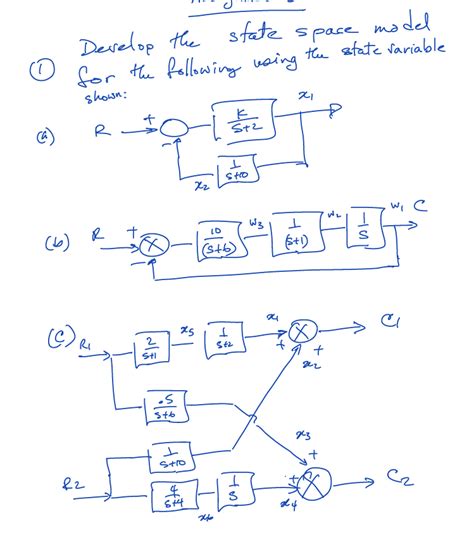 Develop the state space model
① for the following using the state variable
shown:
(a) R + − K/(s+2) x1
1/(s+10) x2
(b) R + − 10/(s+6) w3 1/(s+1) w2 1/s w1 C
(c) R1 2/(s+1) x5 1/(s+2) x1 + + C1
x2
.5/(s+6) x3
1/(s+10) +
R2 4/(s+4) x6 1/s x4 + C2